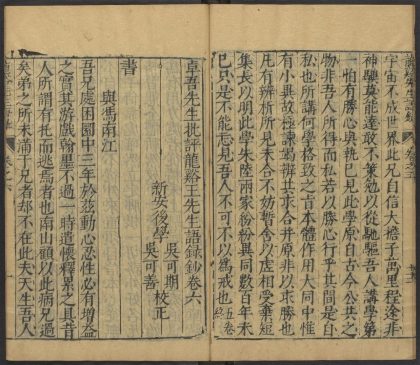 宇宙不成世界此兄自信大擔子萬里程途非
神驥莫能達敢不策勉以從馳驅吾人講學第
一怕有勝心與執己見此學原自古今公共之
物非吾人所得而私若以勝心行乎其間是自
私也所講何學格致之旨本體作用大同中惟
有小異故極謀竭辨共求合并原非以求勝也
凡有辨析所見未合不妨暫舍以虛相受棄短
集長以明此學朱陸兩家紛紛異同數百年未
已只是不能忘見吾人不可不以為戒也五卷終
卓吾先生批評龍谿王先生語錄鈔卷六
新安後學
吳可期
吳可善
校正
書
與馮南江
吾兄處困園中三年於茲動心忍性必有增益
之實其游戲翰墨不過一時遣懷釋累之具昔
人所謂有托而逃焉者也南山顧以此病兄過
矣弟之所未滿于兄者却不在此夫天生吾人